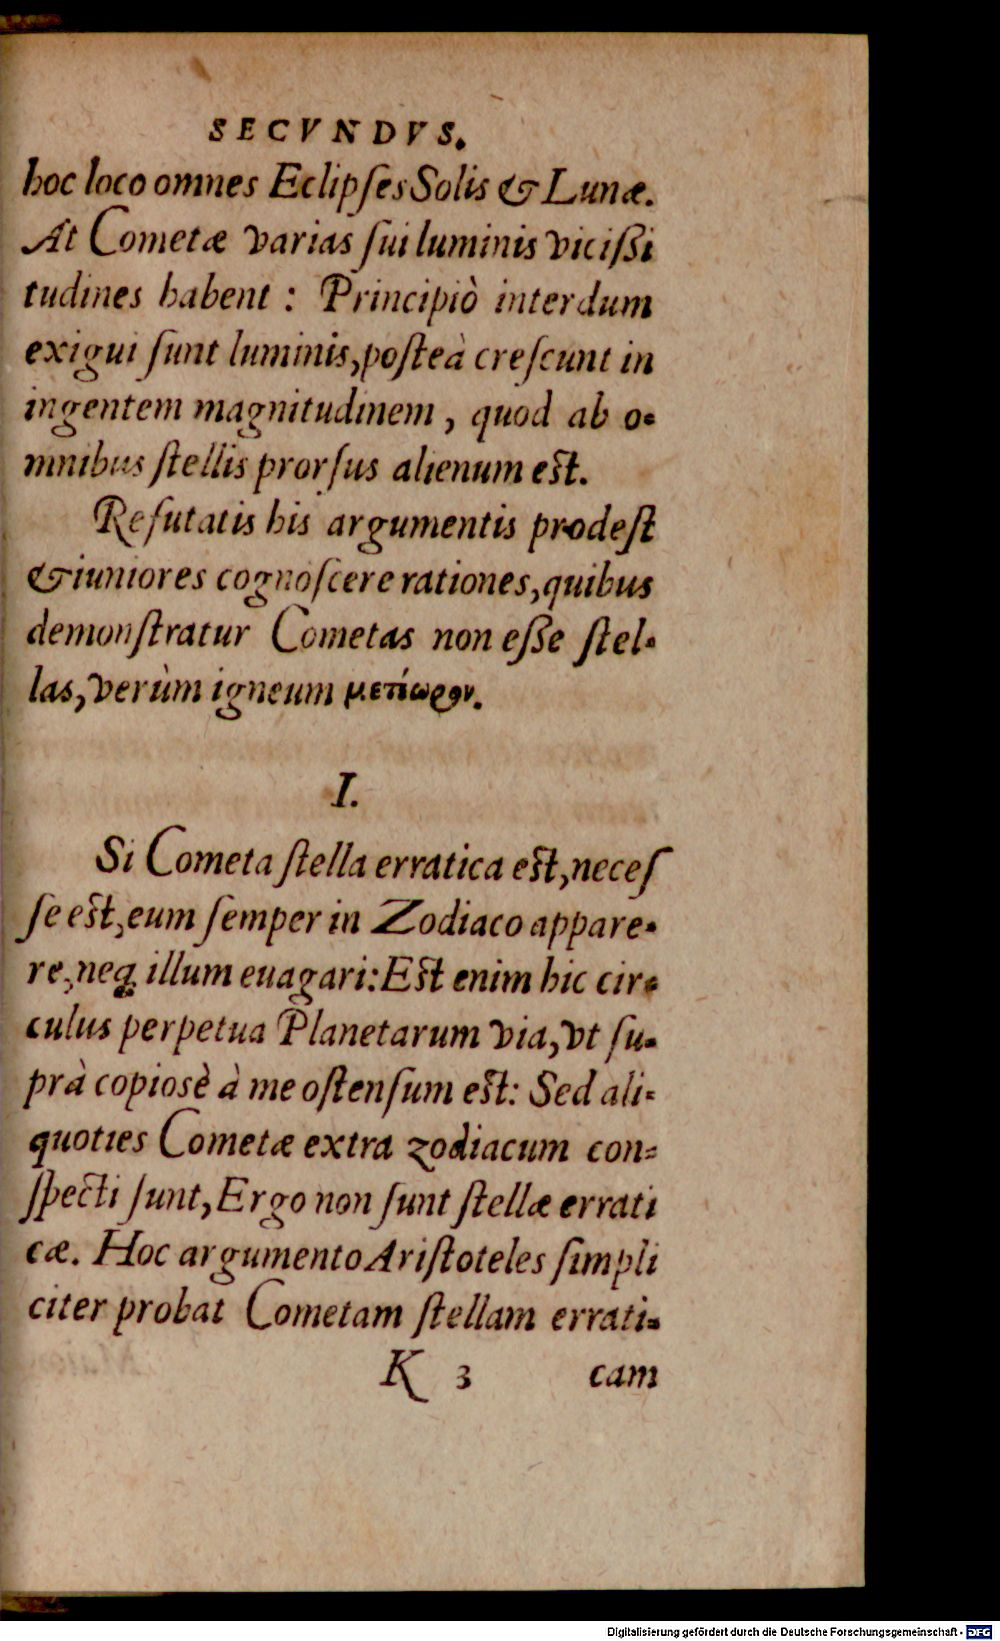 SECVNDVS.
hoc loco omnes Eclipſes Solis & Lunæ.
At Cometæ varias ſui luminis viciſsi
tudines habent : Principiò interdum
exigui ſunt luminis, poſteà creſcunt in
ingentem magnitudinem, quod ab o-
mnibus ſtellis prorſus alienum est.
Refutatis his argumentis prodeſt
& iuniores cognoſcere rationes, quibus
demonſtratur Cometas non eſse ſtel-
las, verùm igneum μετέωρον.
I.
Si Cometa ſtella erratica est, neceſ
ſe est, eum ſemper in Zodiaco appare-
re, neq; illum euagari: Est enim hic cir-
culus perpetua Planetarum via, vt ſu-
prà copiosè à me oſtenſum est: Sed ali-
quoties Cometæ extra zodiacum con-
ſpecti ſunt, Ergo non ſunt ſtellæ errati
cæ. Hoc argumento Ariſtoteles ſimpli
citer probat Cometam ſtellam errati-
K 3 cam
Digitalisierung gefördert durch die Deutsche Forschungsgemeinschaft - DFG